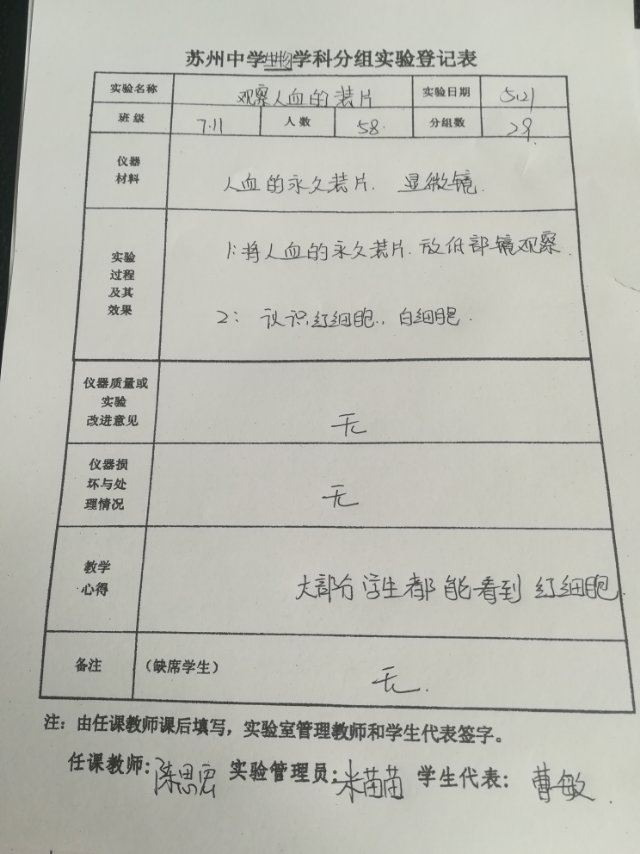 苏州中学生物学科分组实验登记表
实验名称 观察人血的装片 实验日期 5.21
班级 7.11 人数 58 分组数 29
仪器材料 人血的永久装片. 显微镜.
实验过程及其效果 1:将人血的永久装片.放低部镜观察.
2: 认识红细胞., 白细胞.
仪器质量或实验改进意见 无
仪器损坏与处理情况 无
教学心得 大部分学生都能看到红细胞.
备注 (缺席学生) 无.
注:由任课教师课后填写,实验室管理教师和学生代表签字。
任课教师:陈思宏 实验管理员:米苗苗 学生代表:曹敏.